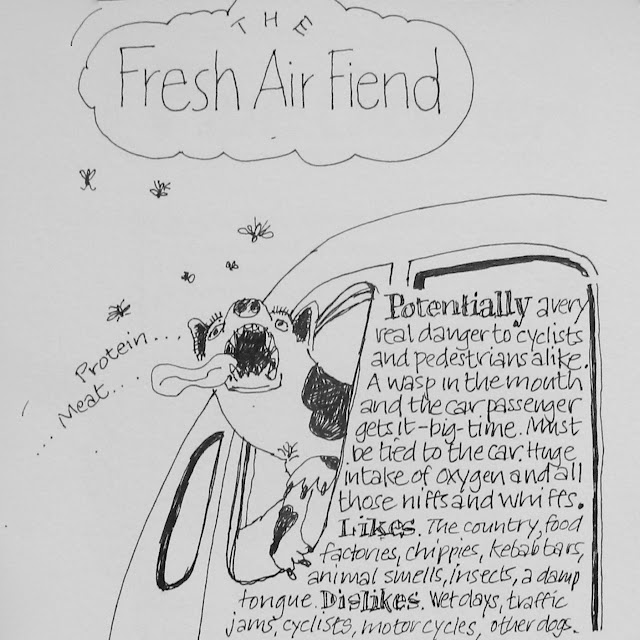 THE
Fresh Air Fiend
Protein...
Meat....
...
Potentially a very
real danger to cyclists
and pedestrians alike.
A wasp in the mouth
and the car passenger
gets it-big-time. Must
be tied to the car. Huge
intake of oxygen and all
those niffs and whiffs.
Likes. The country, food
factories, chippies, kebab bars,
animal smells, insects, a damp
tongue. Dislikes. Wet days, traffic
jams, cyclists, motor cycles, other dogs.